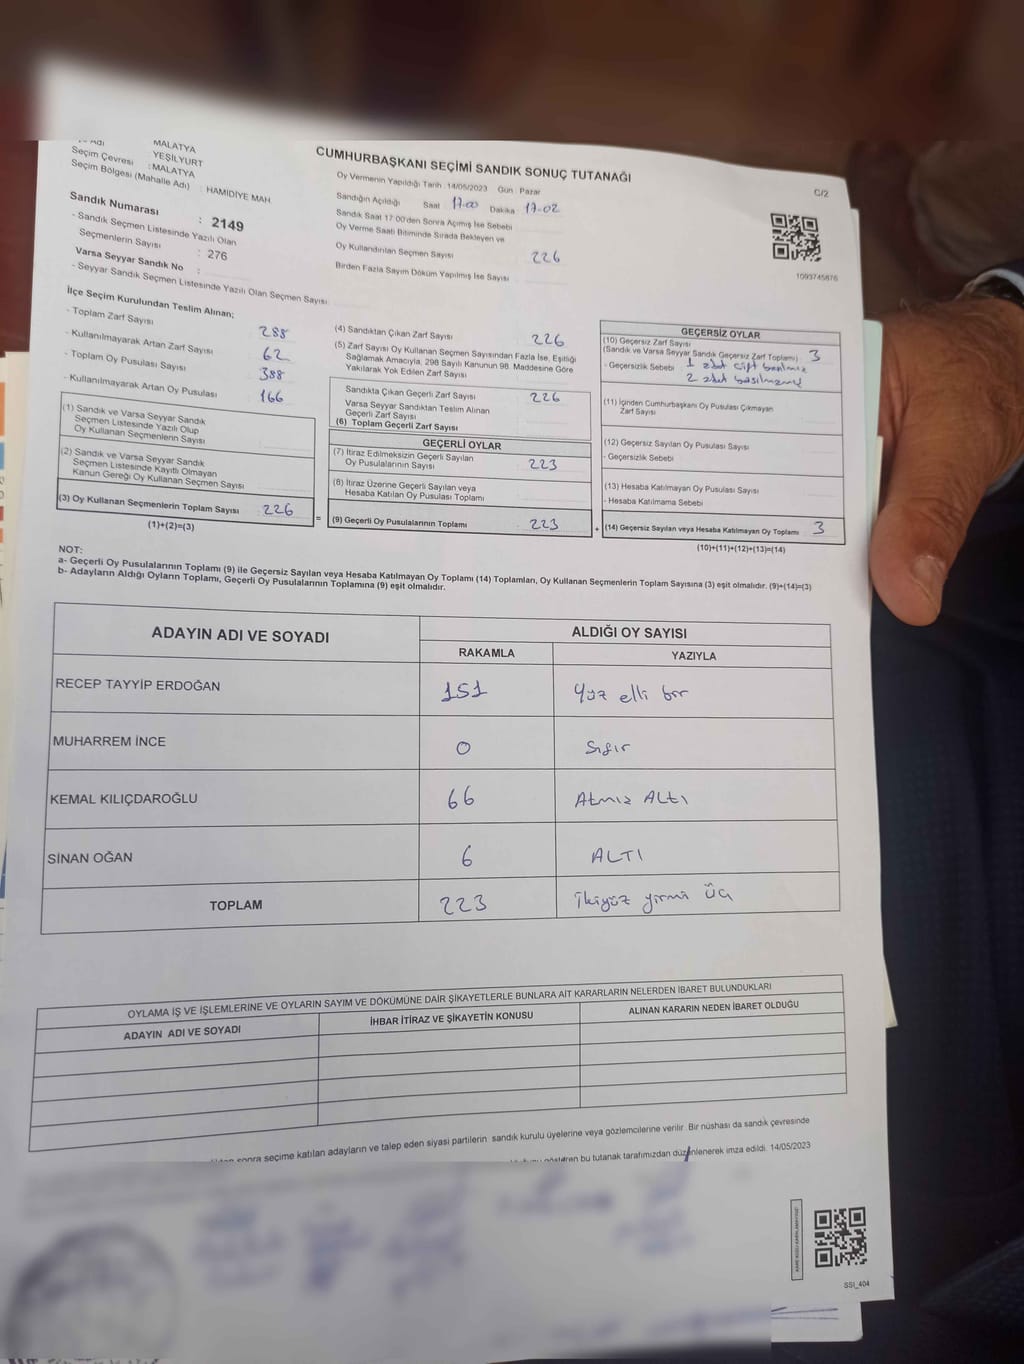 MALATYA
Seçim Çevresi : YEŞİLYURT
Seçim Bölgesi (Mahalle Adı) : MALATYA
: HAMIDIYE MAH.
Sandık Numarası : 2149
- Sandık Seçmen Listesinde Yazılı Olan
Seçmenlerin Sayısı : 276
Varsa Seyyar Sandık No :
- Seyyar Sandık Seçmen Listesinde Yazılı Olan Seçmen Sayısı
CUMHURBAŞKANI SEÇİMİ SANDIK SONUÇ TUTANAĞI
C/2
Oy Vermenin Yapıldığı Tarih : 14/05/2023 Gün : Pazar
Sandığın Açıldığı Saat 17:00 Dakika 17-02
Sandık Saat 17:00'den Sonra Açılmış İse Sebebi
Oy Verme Saati Bitiminde Sırada Bekleyen ve
Oy Kullandırılan Seçmen Sayısı 226
Birden Fazla Sayım Döküm Yapılmış İse Sayısı
1093745876
İlçe Seçim Kurulundan Teslim Alınan;
- Toplam Zarf Sayısı 288
- Kullanılmayarak Artan Zarf Sayısı 62
- Toplam Oy Pusulası Sayısı 388
- Kullanılmayarak Artan Oy Pusulası 166
(1) Sandık ve Varsa Seyyar Sandık
Seçmen Listesinde Yazılı Olup
Oy Kullanan Seçmenlerin Sayısı
(2) Sandık ve Varsa Seyyar Sandık
Seçmen Listesinde Kayıtlı Olmayan
Kanun Gereği Oy Kullanan Seçmen Sayısı
(3) Oy Kullanan Seçmenlerin Toplam Sayısı : 226
(1)+(2)=(3)
(4) Sandıktan Çıkan Zarf Sayısı 226
(5) Zarf Sayısı Oy Kullanan Seçmen Sayısından Fazla İse, Eşitliği
Sağlamak Amacıyla, 298 Sayılı Kanunun 98. Maddesine Göre
Yakılarak Yok Edilen Zarf Sayısı
Sandıkta Çıkan Geçerli Zarf Sayısı 226
Varsa Seyyar Sandıktan Teslim Alınan
Geçerli Zarf Sayısı
(6) Toplam Geçerli Zarf Sayısı
GEÇERLİ OYLAR
(7) İtiraz Edilmeksizin Geçerli Sayılan
Oy Pusulalarının Sayısı 223
(8) İtiraz Üzerine Geçerli Sayılan veya
Hesaba Katılan Oy Pusulası Toplamı
= (9) Geçerli Oy Pusulalarının Toplamı 223
GEÇERSİZ OYLAR
(10) Geçersiz Zarf Sayısı
(Sandık ve Varsa Seyyar Sandık Geçersiz Zarf Toplamı) 3
- Geçersizlik Sebebi : 1 adet çift basılmış
2 adet basılmamış
(11) İçinden Cumhurbaşkanı Oy Pusulası Çıkmayan
Zarf Sayısı
(12) Geçersiz Sayılan Oy Pusulası Sayısı
- Geçersizlik Sebebi
(13) Hesaba Katılmayan Oy Pusulası Sayısı
- Hesaba Katılmama Sebebi
+ (14) Geçersiz Sayılan veya Hesaba Katılmayan Oy Toplamı 3
(10)+(11)+(12)+(13)=(14)
NOT:
a- Geçerli Oy Pusulalarının Toplamı (9) ile Geçersiz Sayılan veya Hesaba Katılmayan Oy Toplamı (14) Toplamları, Oy Kullanan Seçmenlerin Toplam Sayısına (3) eşit olmalıdır. (9)+(14)=(3)
b- Adayların Aldığı Oyların Toplamı, Geçerli Oy Pusulalarının Toplamına (9) eşit olmalıdır.
ADAYIN ADI VE SOYADI ALDIĞI OY SAYISI
RAKAMLA YAZIYLA
RECEP TAYYİP ERDOĞAN 151 Yüz elli bir
MUHARREM İNCE 0 Sıfır
KEMAL KILIÇDAROĞLU 66 Atmız ALTı
SİNAN OĞAN 6 ALTI
TOPLAM 223 İkiyüz yirmi üç
OYLAMA İŞ VE İŞLEMLERİNE VE OYLARIN SAYIM VE DÖKÜMÜNE DAİR ŞİKAYETLERLE BUNLARA AİT KARARLARIN NELERDEN İBARET BULUNDUKLARI
ADAYIN ADI VE SOYADI İHBAR İTİRAZ VE ŞİKAYETİN KONUSU ALINAN KARARIN NEDEN İBARET OLDUĞU
sonra seçime katılan adayların ve talep eden siyasi partilerin sandık kurulu üyelerine veya gözlemcilerine verilir. Bir nüshası da sandık çevresinde
bu tutanak tarafımızdan düzenlenerek imza edildi. 14/05/2023
SSI_404